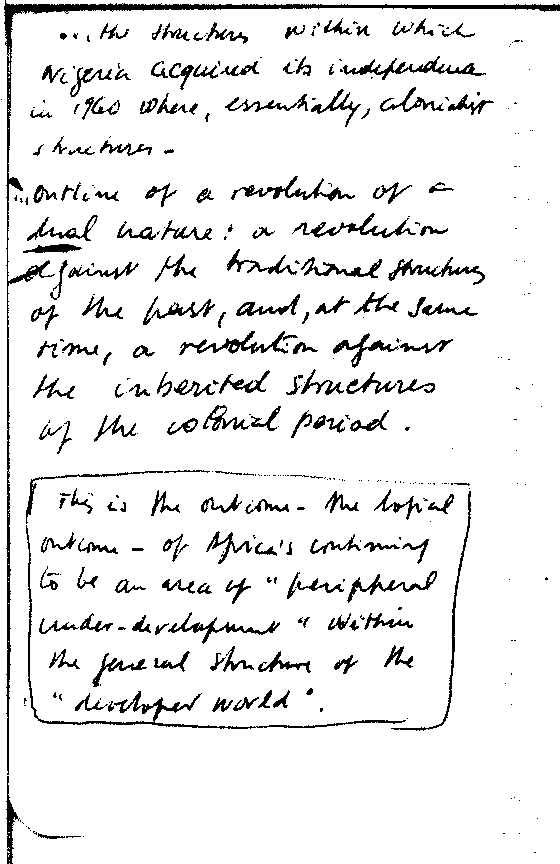 ... the structures within which
Nigeria acquired its independence
in 1960 where, essentially, colonialist
structures -
... outline of a revolution of a
dual nature: a revolution
against the traditional structures
of the past, and, at the same
time, a revolution against
the inherited structures
of the colonial period.
This is the outcome - the logical
outcome - of Africa's continuing
to be an area of "peripheral
under-development" within
the general structure of the
"developed world".